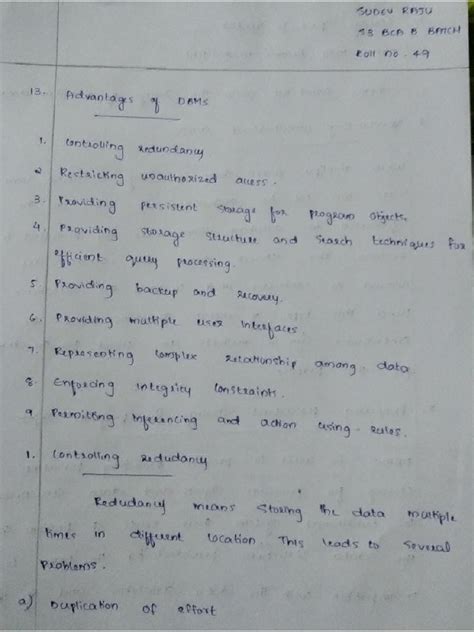 SUDEV RAJU
S3 BCA B BATCH
Roll no. 49
13. Advantages of DBMS
1. Controlling redundancy
2. Restricting unauthorized access.
3. Providing persistent storage for program objects.
4. Providing storage structure and search techniques for
efficient query processing.
5. Providing backup and recovery.
6. Providing multiple user interfaces.
7. Representing complex relationship among data
8. Enforcing integrity constraints.
9. Permitting Inferencing and action using rules.
1. Controlling redudancy
Redudancy means storing the data multiple
times in different location. This leads to several
Problems.
a) Duplication of effort